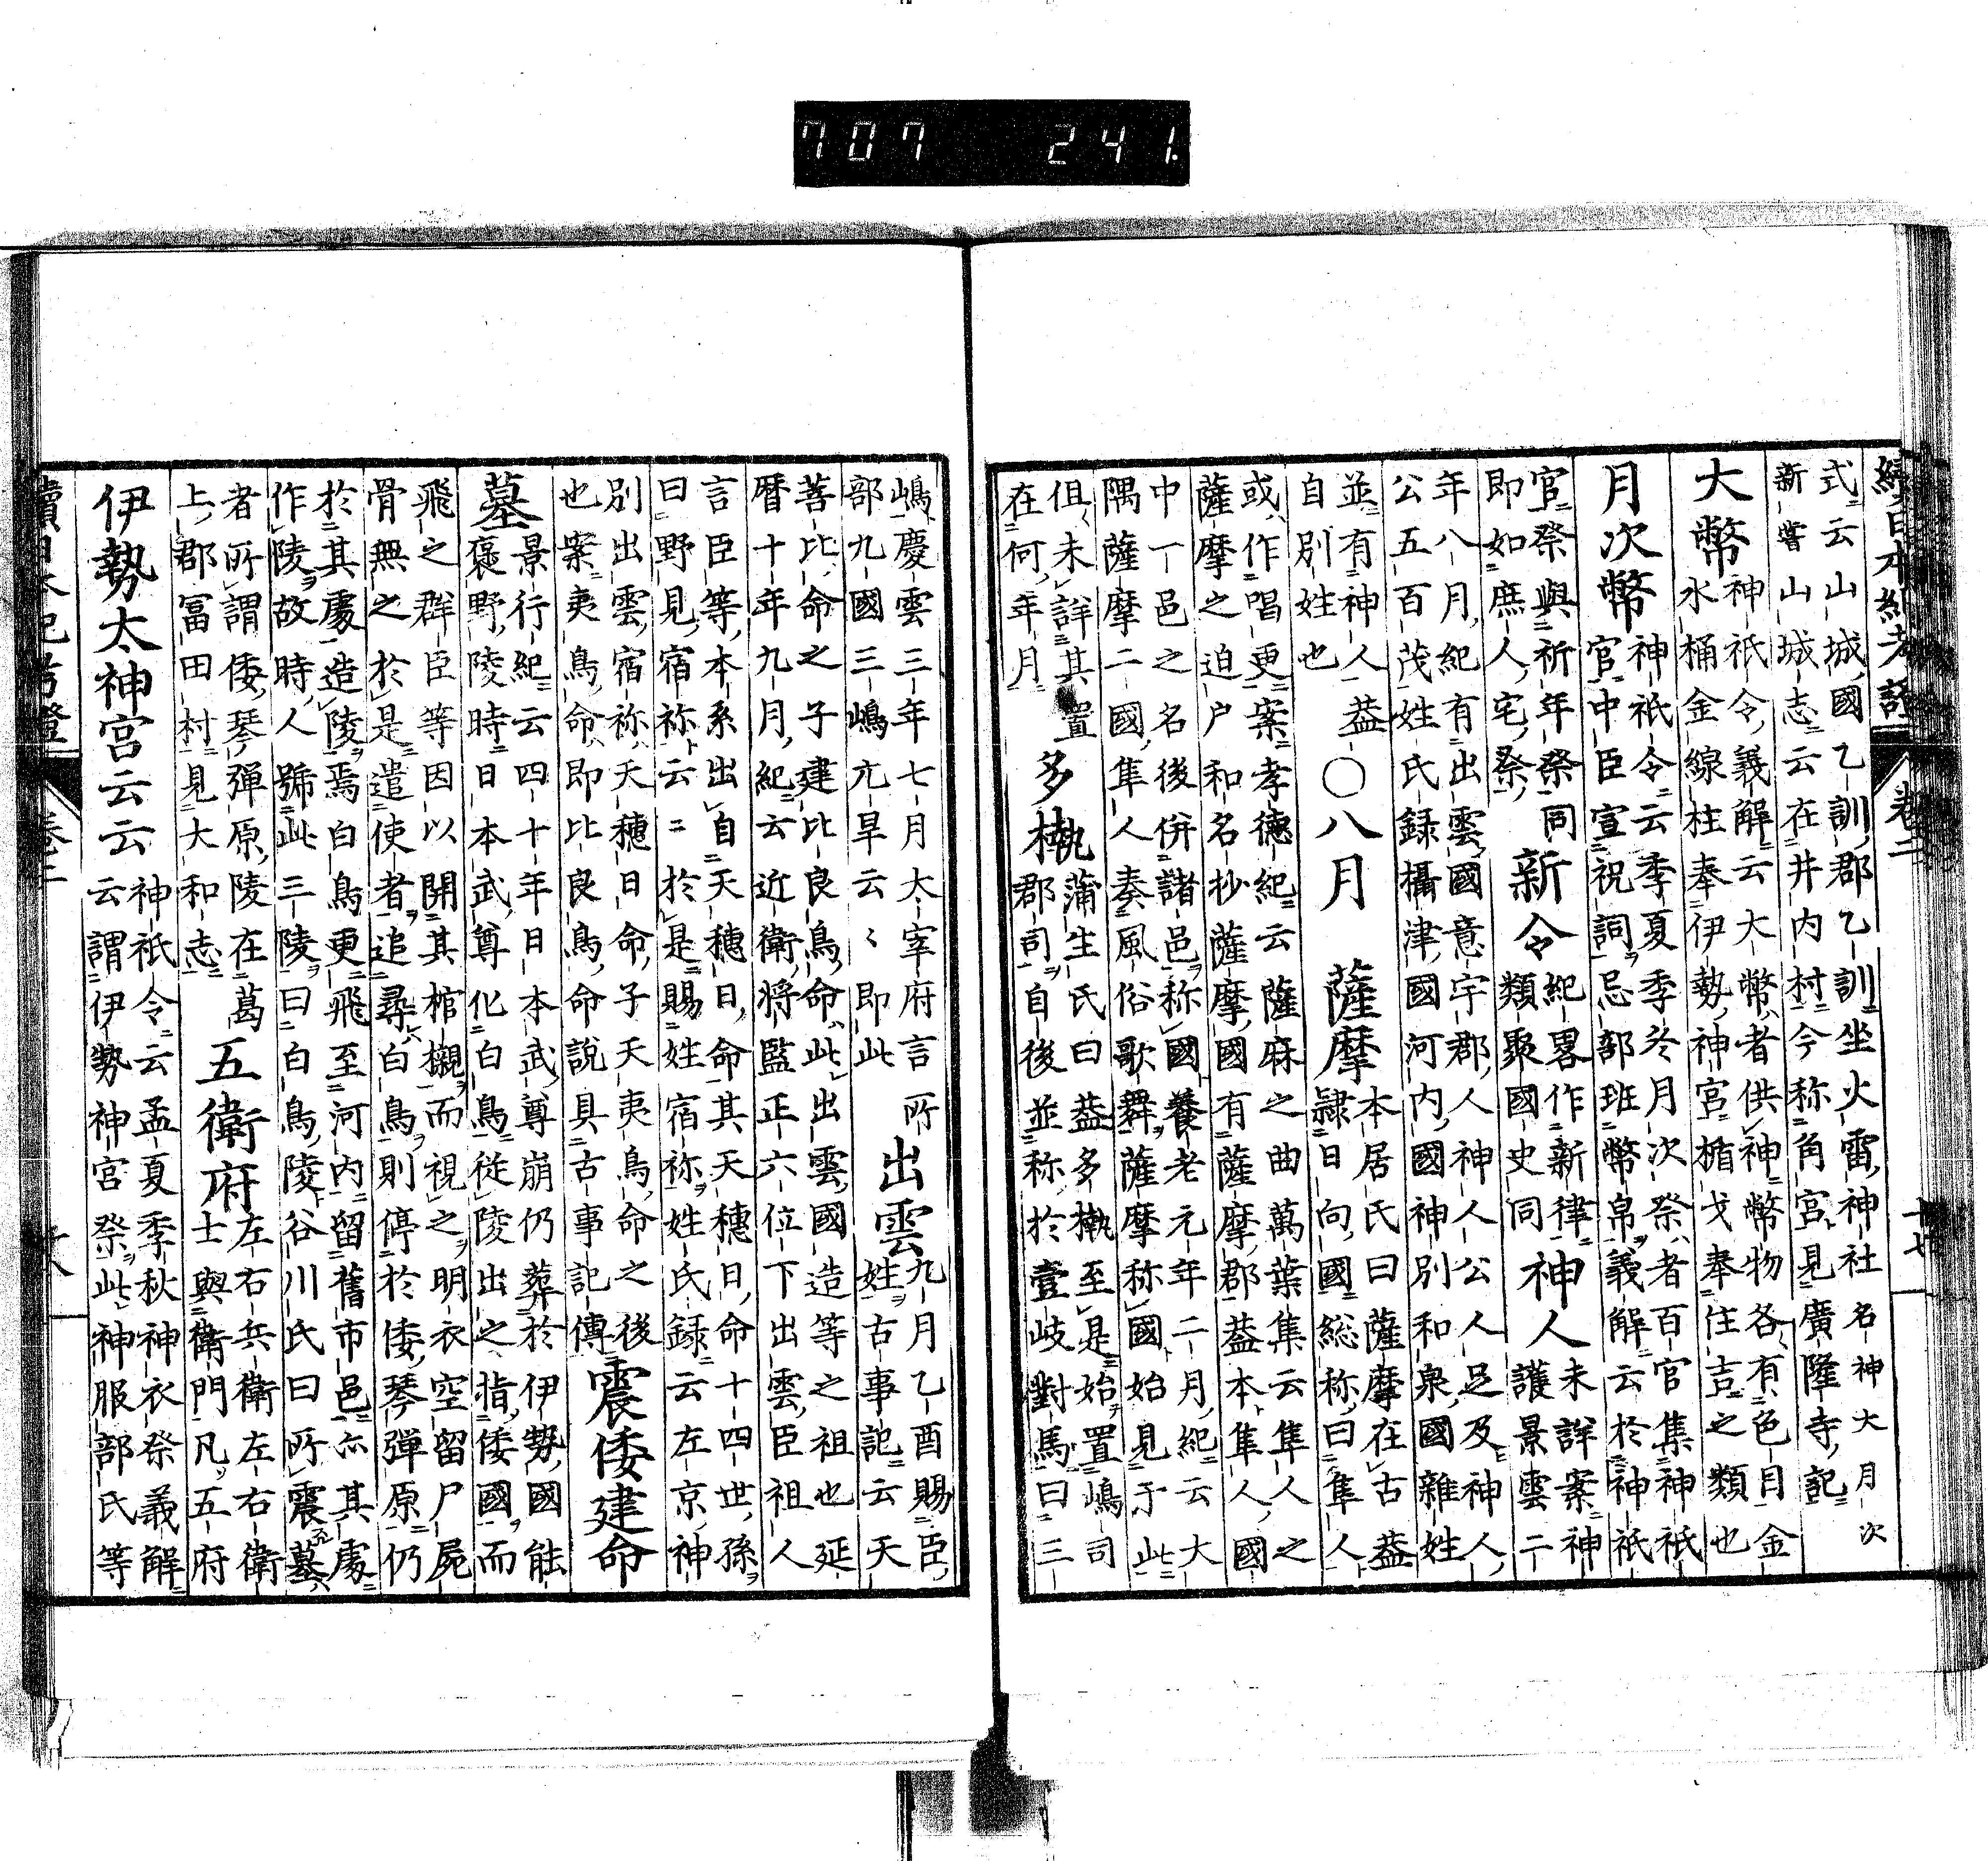 707 241.
續日本紀考證 卷二 十七
式云山城國乙訓郡乙訓坐火雷神社名神大月次
新嘗山城志云在井内村今称角宮見廣隆寺記
大幣神祇令義解云大幣者供神幣物各有色目金
水桶金線柱奉伊勢神宮楯戈奉住吉之類也
月次幣神祇令云季夏季冬月次祭者百官集神祇
官中臣宣祝詞忌部班幣帛義解云於神祇
官祭與祈年祭同
即如庶人宅祭
新令紀畧作新律
類聚國史同
神人未詳案神
護景雲二
年八月紀有出雲國意宇郡人神人公人足及神人
公五百茂姓氏録攝津國河内國神別和泉國雜姓
並有神人葢
自別姓也
〇八月 薩摩本居氏曰薩摩在古葢
隷日向國総称曰隼人
或作唱更案孝德紀云薩麻之曲萬葉集云隼人之
薩摩之迫户和名抄薩摩國有薩摩郡葢本隼人國
中一邑之名後併諸邑称國養老元年二月紀云大
隅薩摩二國隼人奏風俗歌舞薩摩称國始見于此
但未詳其置
在何年月
多褹蒲生氏曰葢多褹至是始置嶋司
郡司自後並称於壹岐對馬曰三
嶋慶雲三年七月太宰府言所
部九國三嶋亢旱云々即此
出雲九月乙酉賜臣
姓古事記云天
菩比命之子建比良鳥命此出雲國造等之祖也延
暦十年九月紀云近衛將監正六位下出雲臣祖人
言臣等本系出自天穗日命其天穗日命十四世孫
曰野見宿祢云云於是賜姓宿祢姓氏録云左京神
別出雲宿祢天穗日命子天夷鳥命之後
也案夷鳥命即比良鳥命說具古事記傳
震倭建命
墓景行紀云四十年日本武尊崩仍葬於伊勢國能
褒野陵時日本武尊化白鳥從陵出之指倭國而
飛之群臣等因以開其棺櫬而視之明衣空留尸屍
骨無之於是遣使者追尋白鳥則停於倭琴彈原仍
於其處造陵焉白鳥更飛至河内留舊市邑亦其處
作陵故時人號此三陵曰白鳥陵谷川氏曰所震墓
者所謂倭琴彈原陵在葛
上郡冨田村見大和志
五衛府左右兵衛左右衛
士與衛門凡五府
伊勢太神宮云云神祇令云孟夏季秋神衣祭義解
云謂伊勢神宮祭此神服部氏等
續日本紀考證 卷二 十八